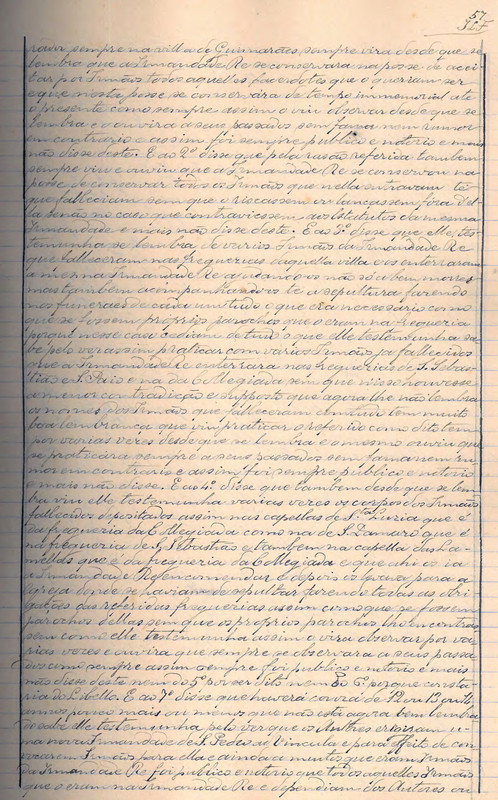 57
125
sempre na villa de Guimarães, sempre vira desde que se
lembra que a Irmandade Re se conservara na posse de acei
tar por Irmãos todos aquelles Sacerdotes que o queriam ser
e que nesta posse se conservara de tempo immemorial até
o presente como sempre assim o viu observar desde que se
lembra e o ouvira a seus passados sem fama nem rumor
em contrario e assim foi sempre publico e notorio e mais
não disse deste. E ao 2º disse que pela rasão referida tambem
sempre viu e ouviu que a Irmandade Re se conservou na
posse de conservar todos os Irmãos que nella entravam té
que falleciam sem que o riscassem ou lançassem fora del
la senão no caso que contraviessem aos Estatutos da mesma
Irmandade e mais não disse deste. E ao 3º disse que elle tes
temunha se lembra de varios Irmãos da Irmandade Re
que falleceram nas freguerias daquella villa e os enterraram
a mesma Irmandade Re
mas tambem acompanhando-os té a sepultura fazendo
nos funeraes de cada um tudo o que era necessario como
que se fossem proprios parochos que o eram na fregueria
porque nesse caso cediam de tudo o que elle testemunha sa
be pelo ver assim praticar com varios Irmãos já fallecidos
que a Irmandade Re enterrara nas freguerias de S. Sebas
tião e S. Paio e na da Collegiada sem que nisso houvesse
a menor contradição e supposto que agora lhe não lembra
os nomes dos Irmãos que falleceram comtudo tem muito
boa lembrança que viu praticar o referido como dito tem
por varias vezes desde que se lembra e o mesmo ouviu que
se praticára sempre a seus passados sem fama nem ru
mor em contrario e assim foi sempre publico e notorio
e mais não disse. E ao 4º disse que tambem desde que se lem
bra viu elle testemunha varias vezes os corpos dos Irmãos
fallecidos depositados assim nas capellas de Sta Luzia que é
da fregueria da Collegiada como na de S. Damaso que é
na fregueria de S. Sebastião e tambem na capella das La
mellas que é da fregueria da Collegiada e que ahi os ia
a Irmandade Re encommendar e depois os levava para a
igreja donde se haviam de sepultar fazendo todas as obri
gações das referidas freguerias assim como que se fossem
parochos dellas sem que os proprios parochos lho encontras
sem como elle testemunha assim o vira observar por va
rias vezes e ouvira que sempre se observara a seus passa
dos como sempre assim sempre foi publico e notorio e mais
não disse deste nem do 5º por ser dito nem do 6º porque consta
ria do Libello. E ao 7º disse que haverá couza de 12 ou 13 para 14
annos pouco mais ou menos que não está agora bem lembra
do sabe elle testemunha pelo ver que os Authores erigiram u
ma nova Irmandade de S. Pedro ad Vincula e para effeito de con
vocarem Irmãos para ella e ainda a muitos que eram Irmãos
da Irmandade Re foi publico e notorio que todos aquelles Irmãos
que o eram na Irmandade Re e dependiam dos Autores ou